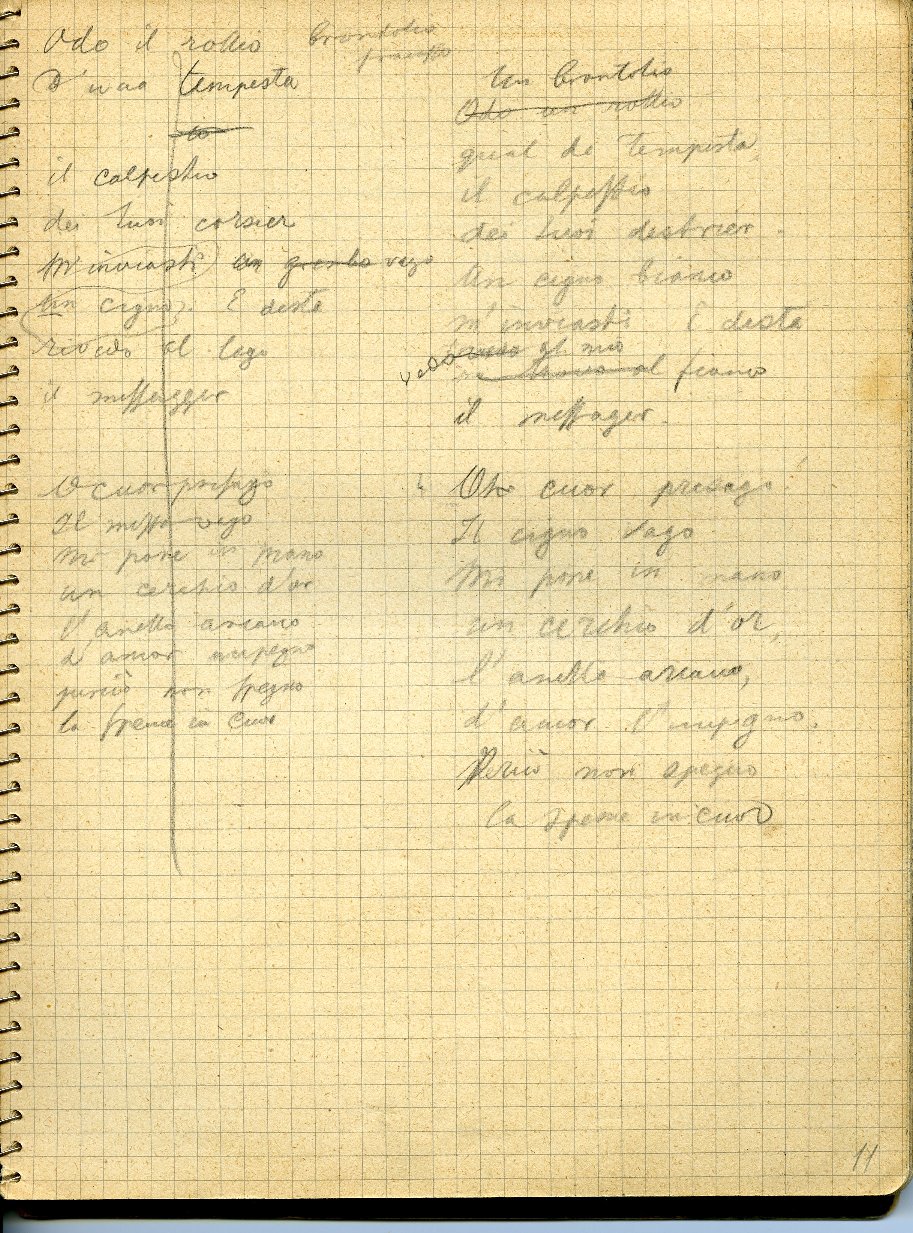 Odo il rollio brontolio
D'una tempesta
il calpestio
dei tuoi corsier
M'inviasti un vago
un cigno. E desta
rivedo al lago
il messegger
O cuor presago
Il messo vago
Mi pone in mano
un cerchio d'or
l'anello arcano
d'amor impegno
perciò non spegno
la speme in cuor
Un brontolio
Odo un rollio
qual di tempesta,
il calpestio
dei tuoi destrier.
Un cigno bianco
m'inviasti E desta
vedo al mio
al fianco
il messager.
Oh cuor presago!
Il cigno vago
Mi pone in mano
un cerchio d'or,
l'anello arcano,
d'amor l'impegno.
Perciò non spegno
la speme in cuor
11